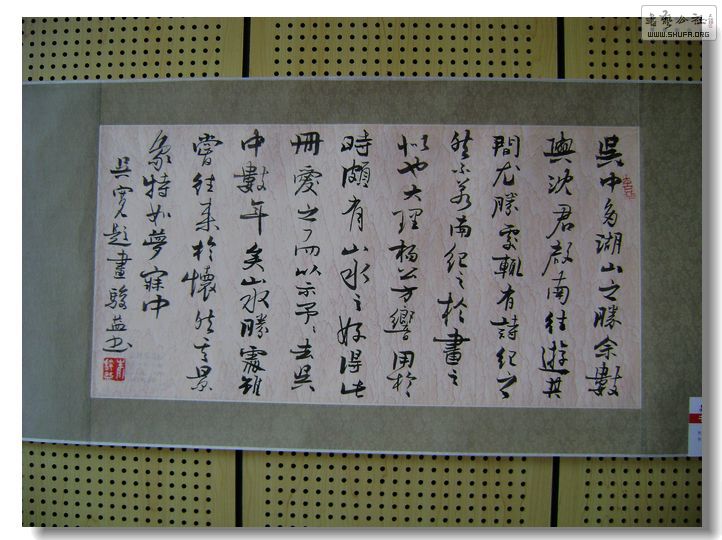 吳中多湖山之勝余數
與沈君啟南往遊其
間尤勝處輒有詩紀之
然不若南紀之於畫之
似也大理楊公方響用於
時頗有山水之好得此
冊愛之乃以示予予去吳
中數年矣山水勝處雖
嘗往来於懷然其景
象特如夢寐中
吳寬題畫 駿益书
書藝公社
WWW.SHUFA.ORG